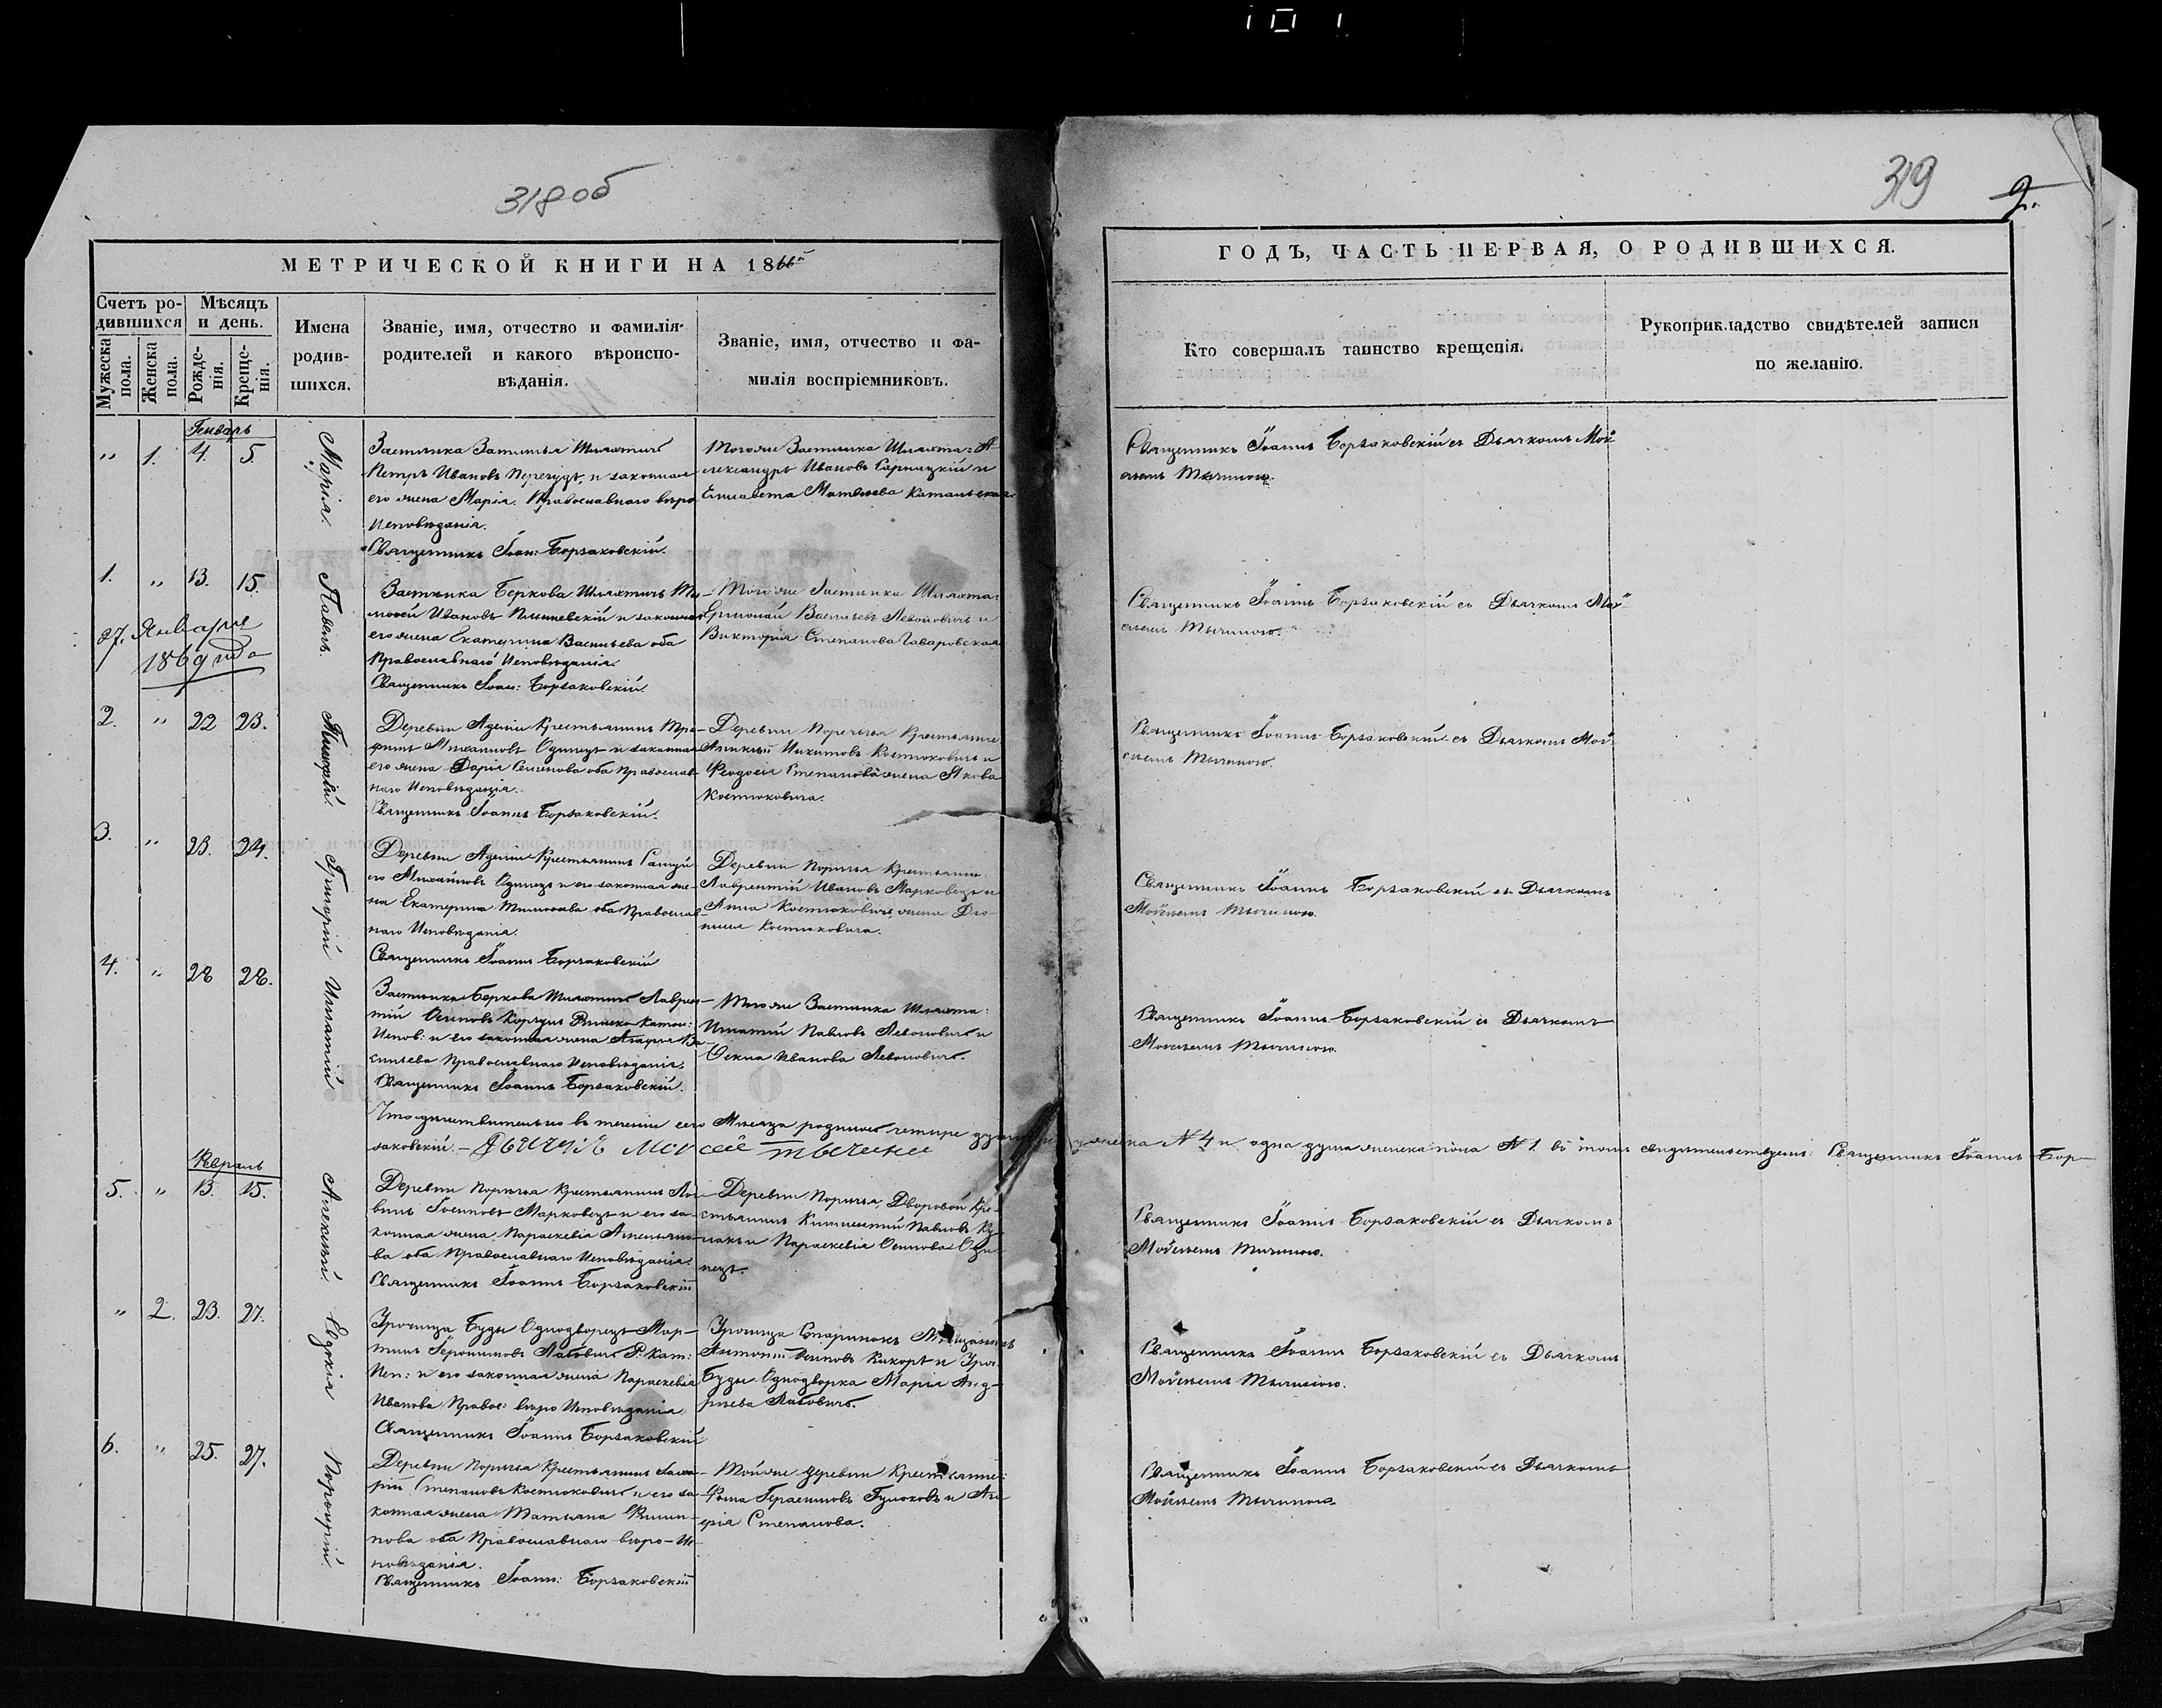 318 об
319
2.
МЕТРИЧЕСКОЙ КНИГИ НА 1866й
ГОДЪ, ЧАСТЬ ПЕРВАЯ, О РОДИВШИХСЯ.
Счетъ ро-
дившихся
Мужеска пола.
Женска пола.
Мѣсяцъ
и день.
Рожде-
нія.
Креще-
нія.
Имена
родив-
шихся.
Званіе, имя, отчество и фамилія
родителей и какого вѣроиспо-
вѣданія.
Званіе, имя, отчество и фа-
милія воспріемниковъ.
Кто совершалъ таинство крещенія.
Рукоприкладство свидѣтелей записи
по желанію.
Генваръ
" 1. 4. 5.
Марія.
Застѣнка Шляхтичъ
Петръ Ивановъ и законная
его жена Марія. Православнаго вѣро
Исповѣданія.
Священникъ Іоан: Борзаковскій.
Тогоже Застѣнка Шляхта: А-
лександръ Ивановъ и
Елисавета Матвѣева
Священникъ Іоаннъ Борзаковскій съ Дьячкомъ Мои
сеемъ Тычиною.
1. " 13. 15.
27. Января
1869 года
Павелъ.
Застѣнка Беркова Шляхтичъ Ти-
моѳей Ивановъ и законная
его жена Екатерина Васильева оба
Православнаго Исповѣданія.
Священникъ Іоан: Борзаковскій.
Тогоже Застѣнка Шляхта:
Васильевъ Левоновичъ и
Викторія Степанова
Священникъ Іоаннъ Борзаковскій съ Дьячкомъ Мои
сеемъ Тычиною.
2. " 22 23.
Деревни Крестьянинъ Тро-
фимъ Михайловъ Одинецъ и законная
его жена Дарія Семенова оба Православ-
наго Исповѣданія.
Священникъ Іоаннъ Борзаковскій.
Деревни Порѣчья Крестьяне
Никитовъ Костюковичъ и
Ѳеодосія Степанова жена Якова
Костюковича.
Священникъ Іоаннъ Борзаковскій съ Дьячкомъ Мои
сеемъ Тычиною.
3. " 23. 24.
Григорій
Деревни Крестьянинъ
Михайловъ Одинецъ и его законная же-
на Екатерина оба Православ-
наго Исповѣданія.
Священникъ Іоаннъ Борзаковскій
Деревни Порѣчья Крестьяне:
Лаврентій Ивановъ Марковецъ и
Анна Костюковичъ жена Діо-
нисія Костюковича.
Священникъ Іоаннъ Борзаковскій съ Дьячкомъ
Моисеемъ Тычиною.
4. " 28 28.
Игнатій
Застѣнка Беркова Шляхтичъ Лаврен-
тій Осиповъ Корзунъ Римско-Катол:
Испов: и его законная жена Агафія Ва-
сильева Православнаго Исповѣданія.
Священникъ Іоаннъ Борзаковскій.
Тогоже Застѣнка Шляхта:
Игнатій Павловъ Левоновичъ и
Ѳекла Иванова Левоновичъ.
Священникъ Іоаннъ Борзаковскій съ Дьячкомъ
Моисеемъ Тычиною.
Что дѣйствительно въ теченіи сего Мѣсяца родилось четыре души № 4 и одна душа женска пола № 1. въ томъ свидѣтельствуемъ: Священникъ Іоаннъ Бор-
заковскій. – Дьячекъ Моисей Тычина
Февраль
5. " 13. 15.
Алексѣй.
Деревни Порѣчья Крестьянинъ
Іосифовъ Марковецъ и его за-
конная жена Параскевія
ва оба Православнаго Исповѣданія.
Священникъ Іоаннъ Борзаковскій
Деревни Порѣчья, Дворовой Кре-
стьянинъ Павловъ
и Параскевія Осипова Оди-
нецъ.
Священникъ Іоаннъ Борзаковскій съ Дьячкомъ
Моисеемъ Тычиною.
" 2. 23. 27.
Евдокія
Урочища Буды Однодворецъ Мар-
тинъ Іеронимовъ Лабовичъ Р: Кат:
Исп: и его законная жена Параскевія
Иванова Правос: вѣро Исповѣданія.
Священникъ Іоаннъ Борзаковскій
Урочища Мѣщанинъ
Антоній Осиповъ и Уроч:
Буды Однодворка Марія Анд-
рѣева Лабовичъ.
Священникъ Іоаннъ Борзаковскій съ Дьячкомъ
Моисеемъ Тычиною.
6. " 25. 27.
Порфирій.
Деревни Порѣчья Крестьянинъ
Степановъ Костюковичъ и его за-
конная жена Татьяна Филип-
пова оба Православнаго вѣро-Ис
повѣданія.
Священникъ Іоанн: Борзаковскій
Тойже деревни Крестьяне:
Ѳома Герасимовъ и
Степанова.
Священникъ Іоаннъ Борзаковскій съ Дьячкомъ
Моисеемъ Тычиною.